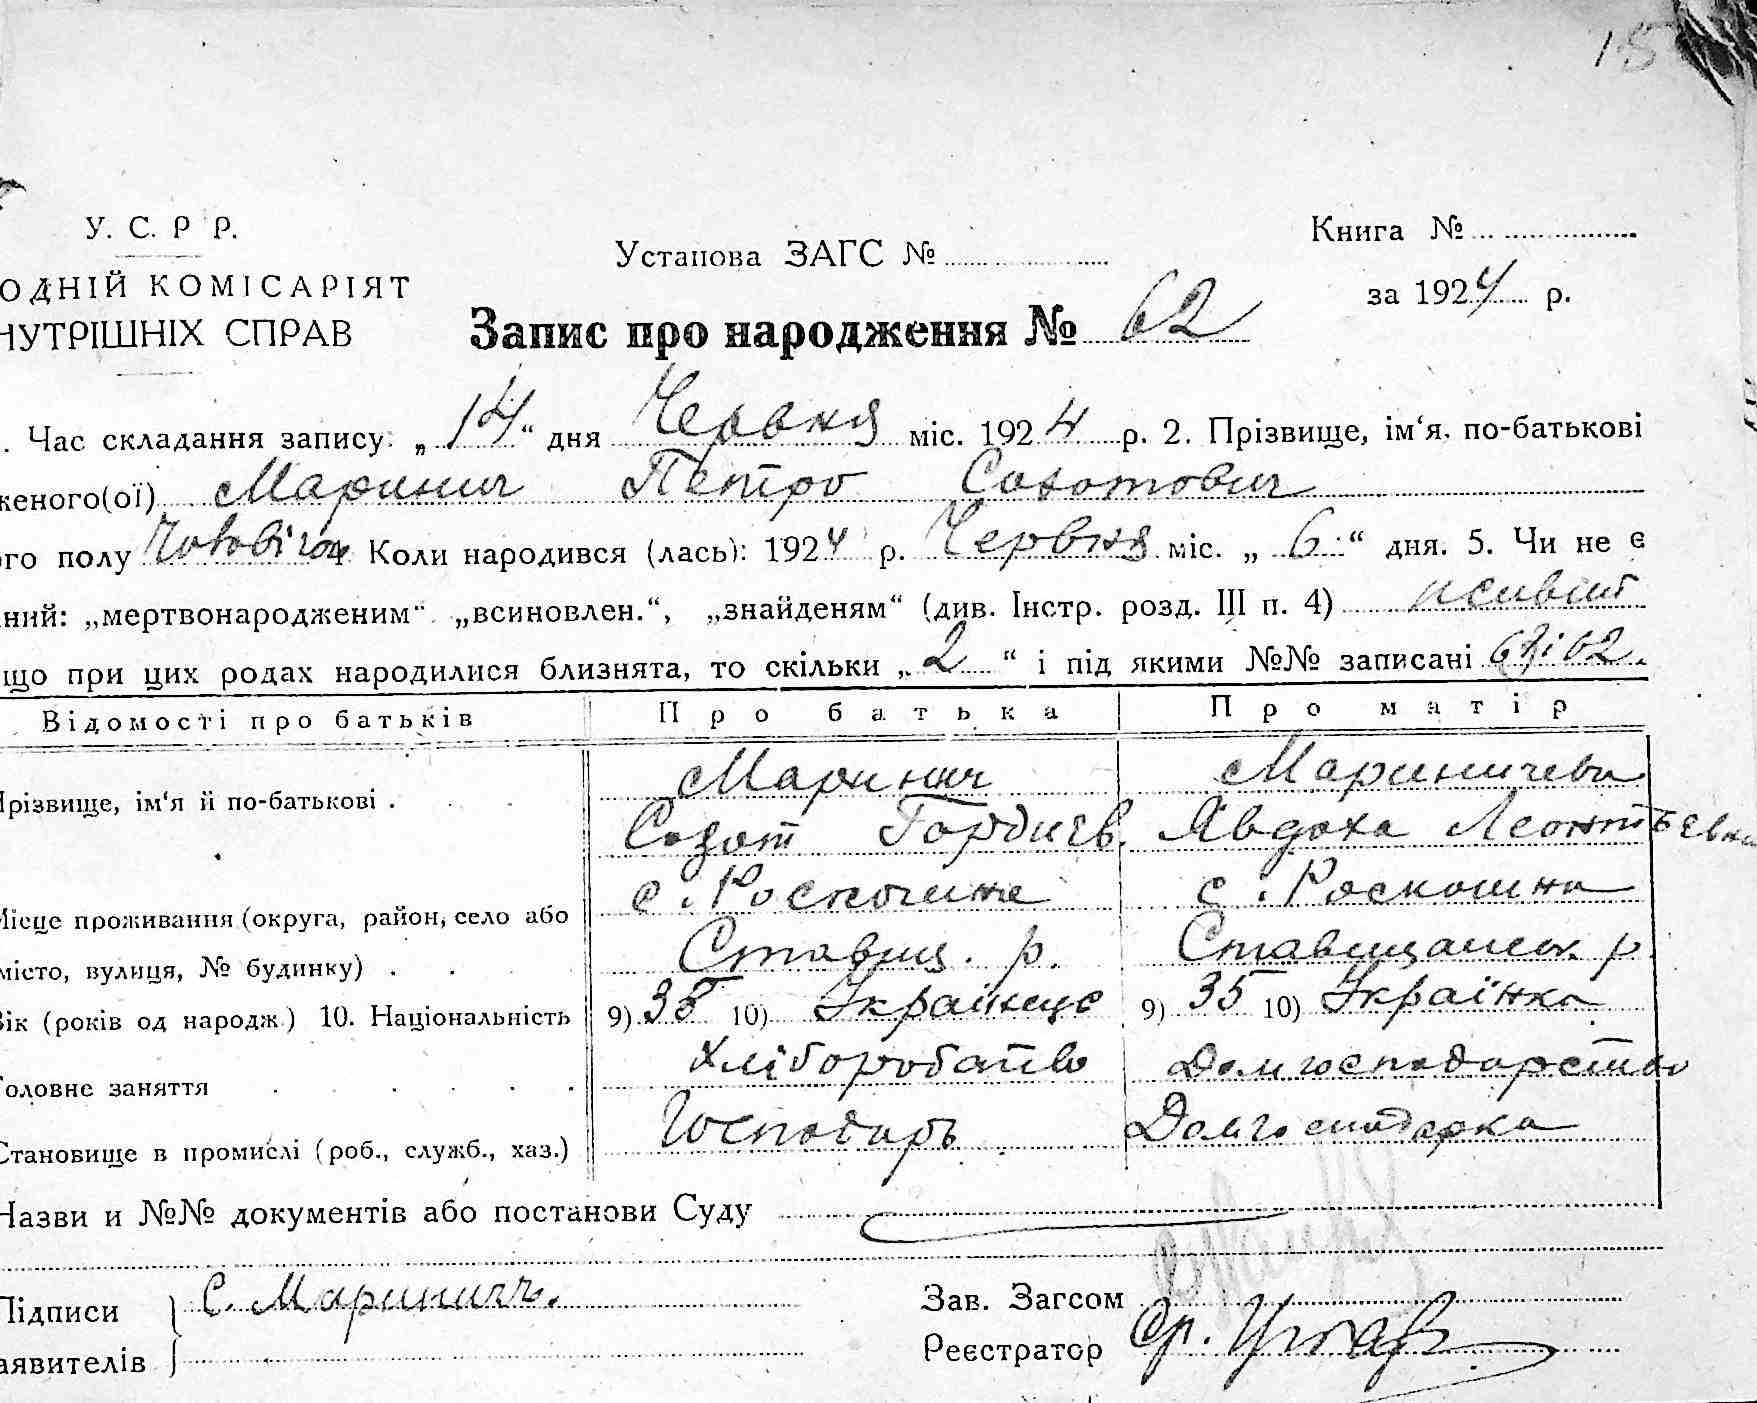 15
У. С. Р Р.
ОДНІЙ КОМІСАРІЯТ
НУТРІШНІХ СПРАВ
Установа ЗАГС №
Книга №
за 1924 р.
Запис про народження № 62
. Час складання запису: „14“ дня Червня міс. 1924 р. 2. Прізвище, ім‘я, по-батькові
женого(ої) Маринич Петро Созотович
ого полу Чоловічого 4 Коли народився (лась): 1924 р. Червня міс. „6“ дня. 5. Чи не є
ний: „мертвонародженим“ „всиновлен.“, „знайденям“ (див. Інстр. розд. III п. 4)
що при цих родах народилися близнята, то скільки „2“ і під якими №№ записані 61 і 62.
Відомості про батьків Про батька Про матір
Прізвище, ім‘я й по-батькові . Маринич Мариничева
Созот Гордиєв. Явдоха Леонтьевна
Місце проживання (округа, район, село або с. Роскошне с. Роскошна
місто, вулиця, № будинку) . Ставищ. р. Ставищанськ. р.
Вік (років од народж.) 10. Національність 9) 38 10) Українець 9) 35 10) Українка
Головне заняття Хліборобство Домгосподарство
Становище в промислі (роб., служб., хаз.) Господарь Домгосподарка
Назви и №№ документів або постанови Суду
Підписи С. Маринич. Зав. Загсом
аявителів Реєстратор